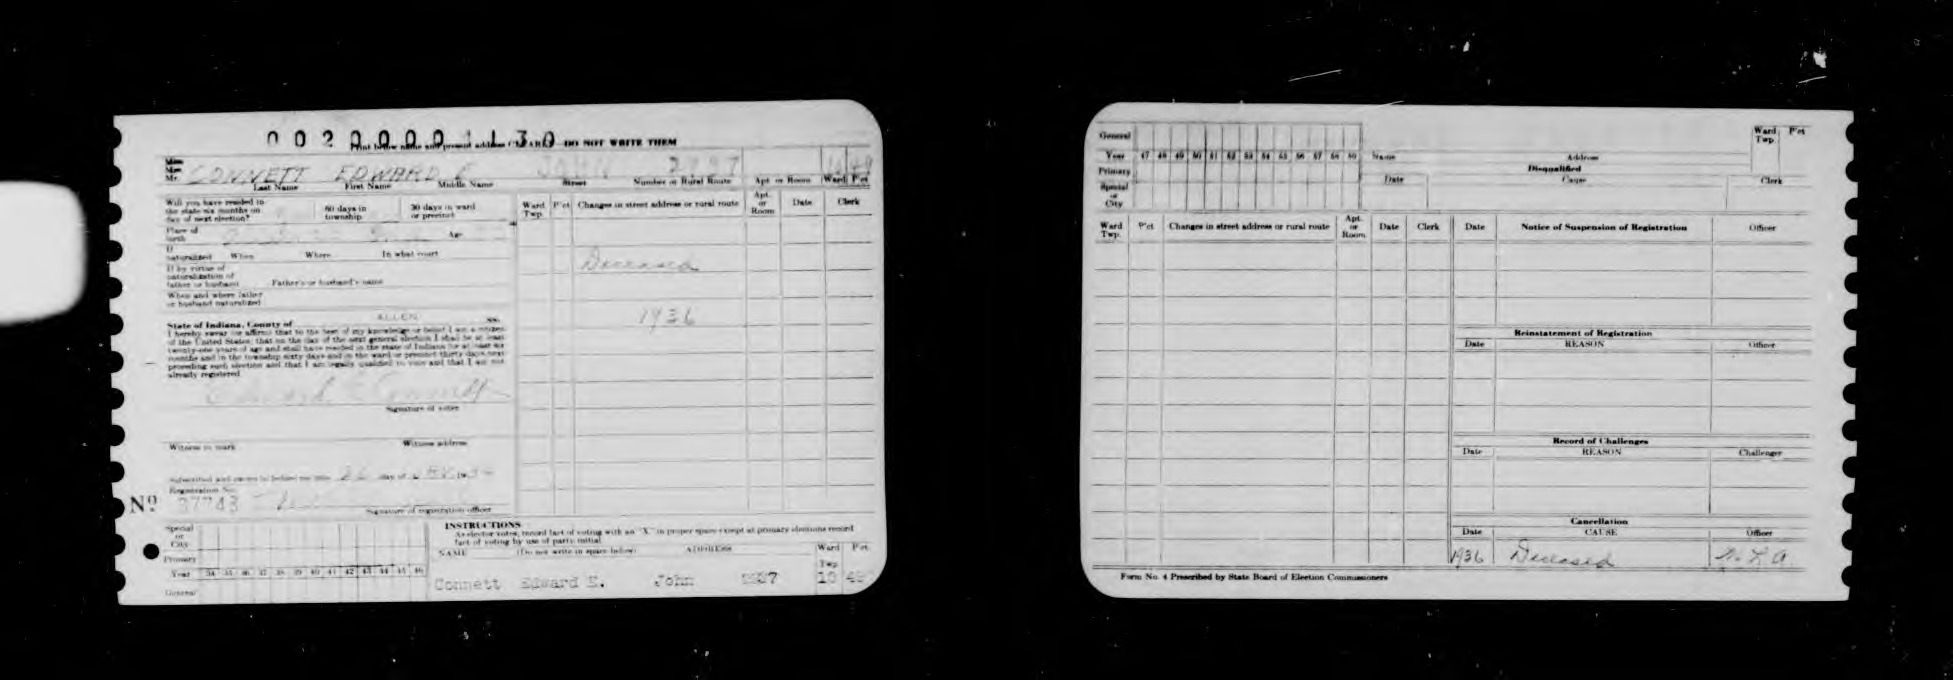 00200001130
Print below name and present address CLEARLY DO NOT WRITE THEM
Miss
Mrs.
Mr. CONNETT EDWARD E JOHN 10 49
Last Name First Name Middle Name Street Number or Rural Route Apt or Room Ward P'ct
Will you have resided in
the state six months on
day of next election?
60 days in
township
30 days in ward
or precinct
Place of
birth Age
If
naturalized When Where In what court
If by virtue of
naturalization of
father or husband Father's or husband's name
When and where father
or husband naturalized
State of Indiana, County of ALLEN ss.
I hereby swear (or affirm) that to the best of my knowledge or belief I am a citizen
of the United States; that on the day of the next general election I shall be at least
twenty-one years of age and shall have resided in the state of Indiana for at least six
months and in the township sixty days and in the ward or precinct thirty days next
preceding such election and that I am legally qualified to vote and that I am not
already registered
Edward E Connett
Signature of voter
Witness to mark Witness address
Subscribed and sworn to before me this 26 day of
Registration No.
No. 37743
Signature of registration officer
Ward Twp. P'ct Changes in street address or rural route Apt. or Room Date Clerk
Deceased
1936
Special
or
City
Primary
Year 34 35 36 37 38 39 40 41 42 43 44 45 46
General
INSTRUCTIONS
As elector votes, record fact of voting with an "X" in proper space except at primary elections record
fact of voting by use of party initial
NAME (Do not write in space below) ADDRESS Ward Twp P'ct
Connett Edward E. John 10 49
General
Year 47 48 49 50 51 52 53 54 55 56 57 58 59
Primary
Special
or
City
Name Address Ward Twp. P'ct
Disqualified
Date Cause Clerk
Ward Twp. P'ct Changes in street address or rural route Apt. or Room Date Clerk
Date Notice of Suspension of Registration Officer
Reinstatement of Registration
Date REASON Officer
Record of Challenges
Date REASON Challenger
Cancellation
Date CAUSE Officer
1936 Deceased
Form No. 4 Prescribed by State Board of Election Commissioners